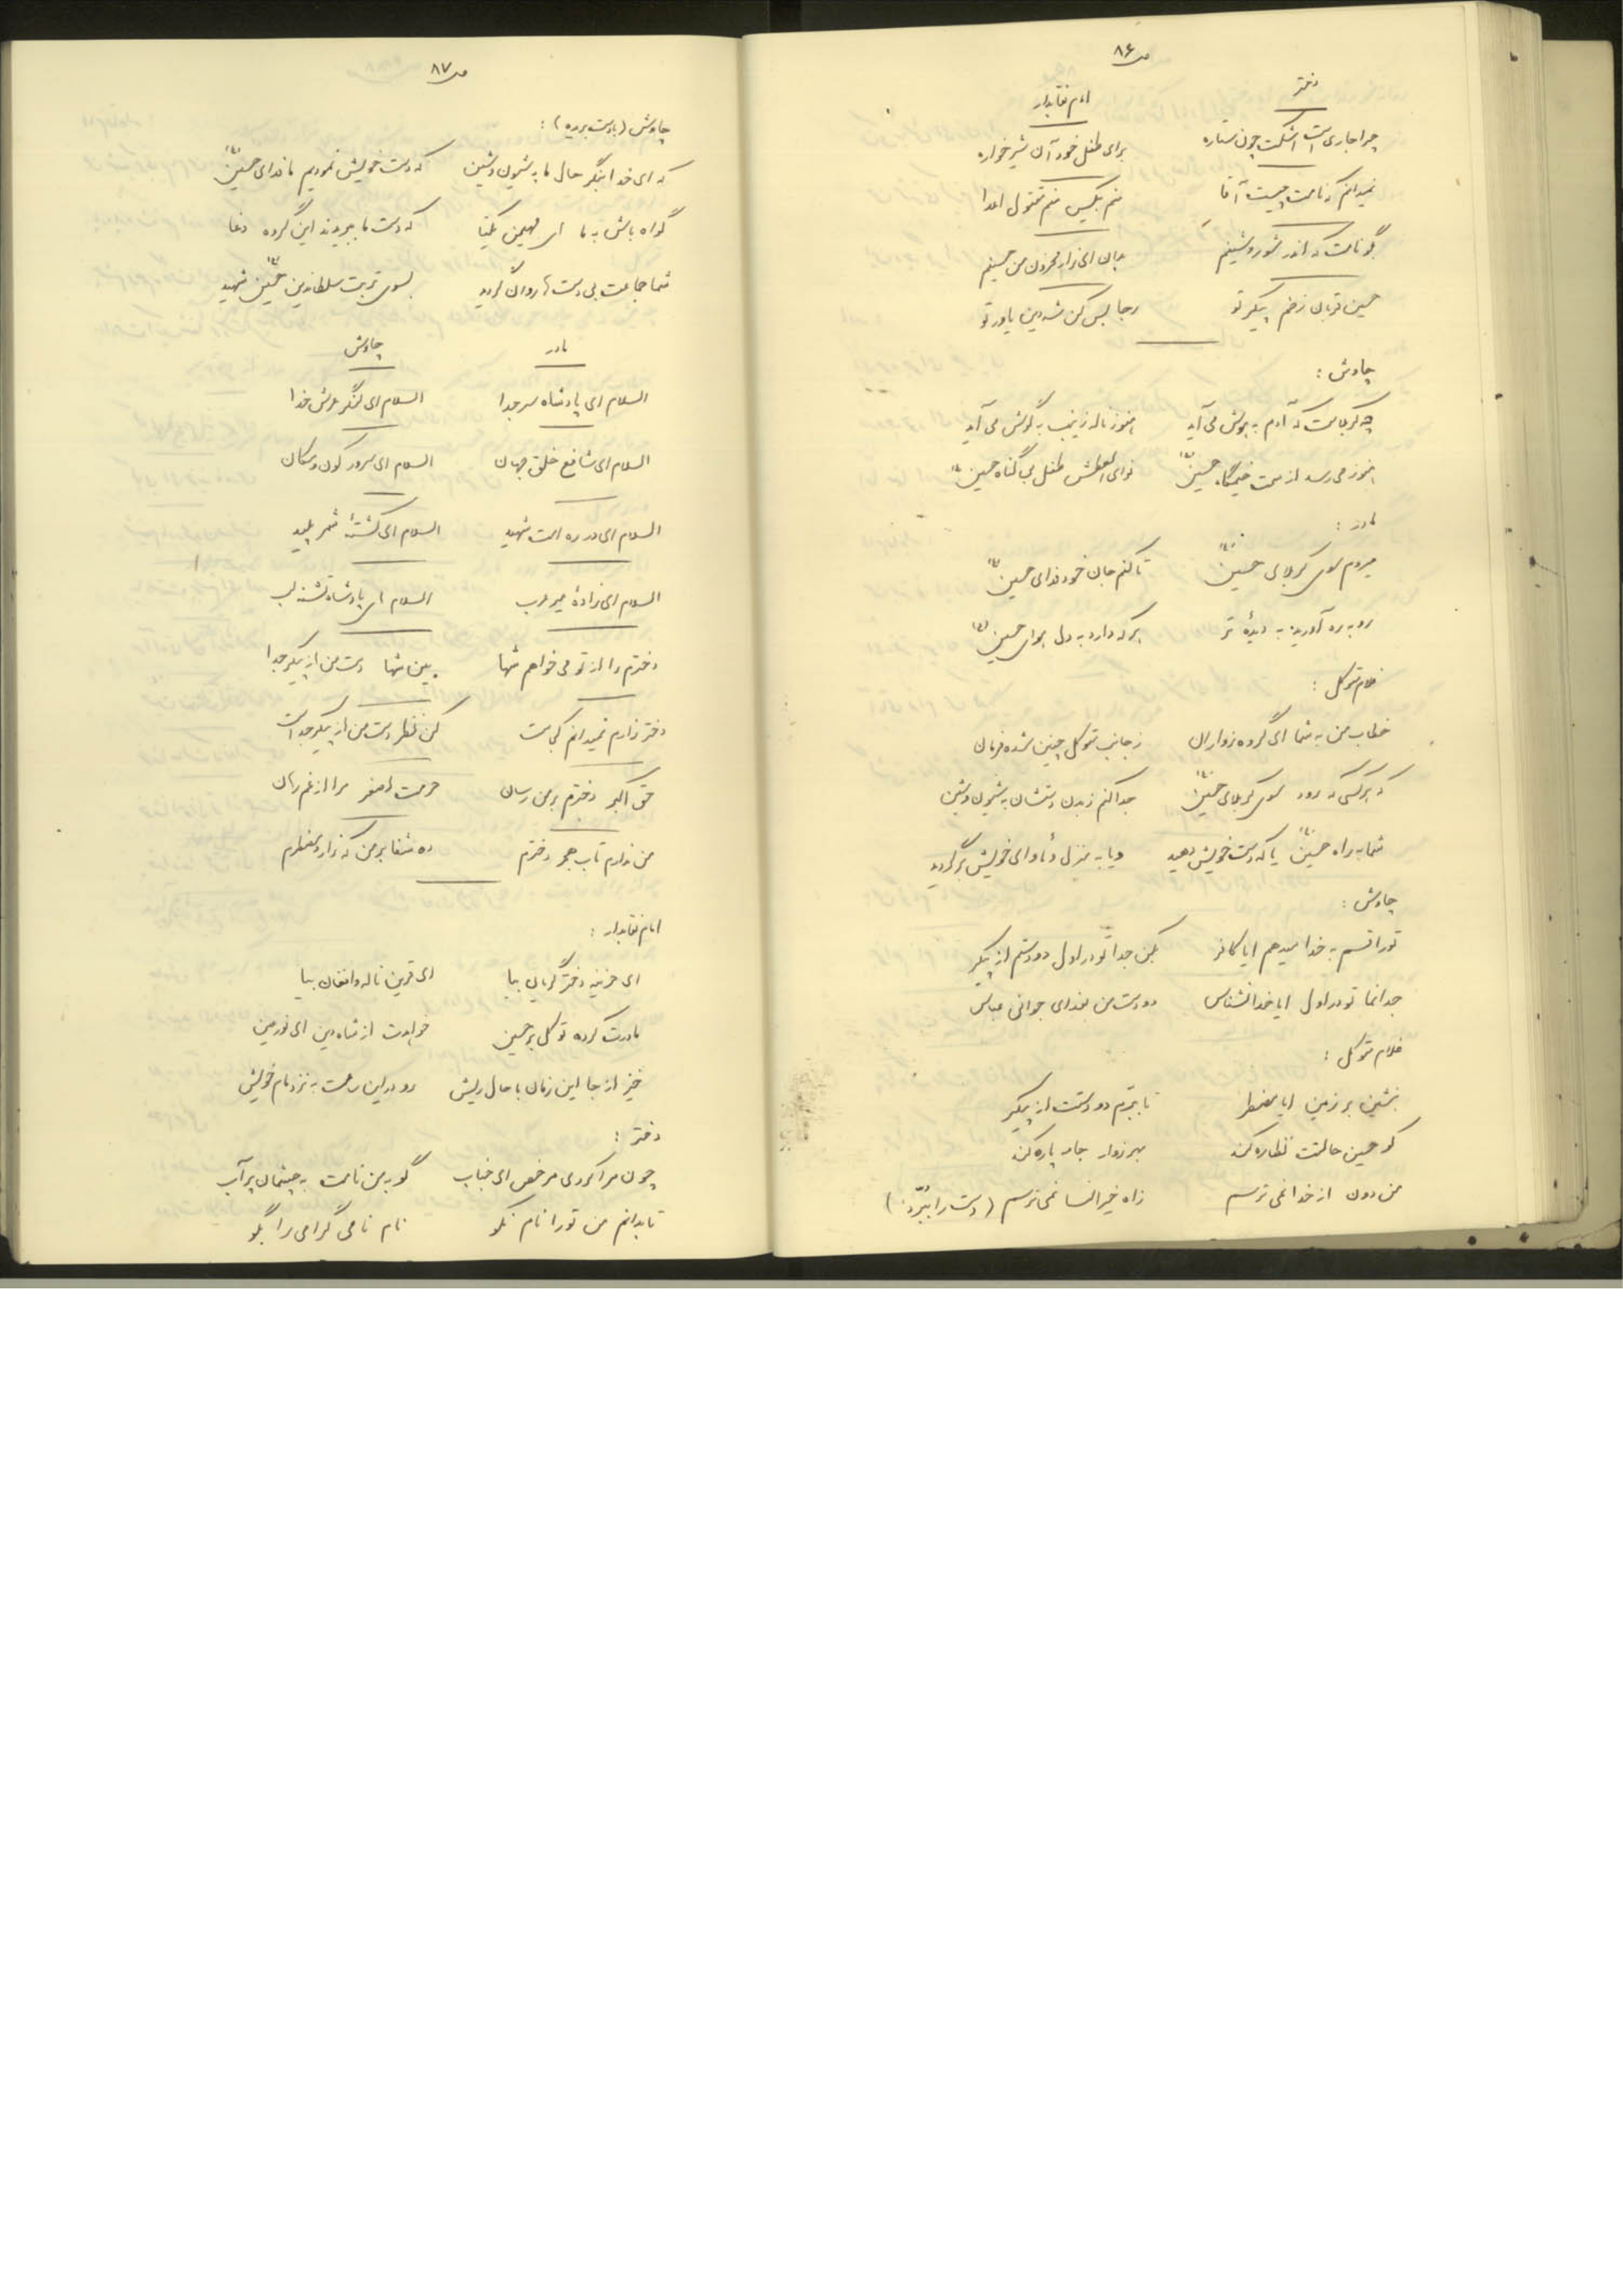 ص ۸۶
دختر
امام نقابدار
چرا جاری است اشکت چون ستاره برای طفل خود آن شیرخواره
نمیدانم که نامت چیست آقا منم بیکس منم مقتول اعدا
بگو نامت که اندر شور و شینم بدان ای زار محزون من حسینم
حسین قربان زخم پیکر تو رجا بس کن شه دین یاور تو
چاوش :
چه کربلاست که آدم به هوش می آید هنوز ناله زینب به گوش می آید
هنوز می رسد از سمت خیمگاه حسین نوای العطش طفل بی گناه حسین
مادر :
میروم سوی کربلای حسین تا کنم جان خود فدای حسین
رو به ره آورید به دیدهٔ تر هر که دارد به دل هوای حسین
غلام متوکل :
خطاب من به شما ای گروه زواران ز جانب متوکل چنین شده فرمان
که هر کسی که رود سوی کربلای حسین جدا کنم ز بدن دستشان به شیون و شین
شما به راه حسین یا که دست خویش دهید و یا به منزل و مأوای خویش برگردید
چاوش :
تو را قسم به خدا میدهم ایا کافر بکن جدا تو در اول دو دستم از پیکر
جدا نما تو در اول ایا خدانشناس دو دست من بفدای جوانی عباس
غلام متوکل :
بنشین بر زمین ایا مضطر تا ببرم دو دستت از پیکر
کو حسین حالتت نظاره کند بهر زوار جامه پاره کند
من دون از خدا نمی ترسم ز آه خیرالنسا نمی ترسم (دست را ببرد)
ص ۸۷
چاوش (با دست بریده) :
که ای خدا بنگر حال ما به شیون و شین که دست خویش نمودیم ما فدای حسین
گواه باش به ما ای مهیمن یکتا که دست ما ببریدند این گروه دغا
شما جماعت بی دست ها روان گردید بسوی تربت سلطان دین حسین شهید
مادر
چاوش
السلام ای پادشاه سر جدا السلام ای لنگر عرش خدا
السلام ای شافع خلق جهان السلام ای سرور کون و مکان
السلام ای در ره امت شهید السلام ای کشتهٔ شمر پلید
السلام ای زادهٔ میر عرب السلام ای پادشاه تشنه لب
دخترم را از تو می خواهم شها بین شها دست من از پیکر جدا
دختر زارم نمیدانم کجاست کن نظر دست من از پیکر جداست
حق اکبر دخترم بر من رسان حرمت اصغر مرا از غم رهان
من ندارم تاب هجر دخترم ده شفا بر من که زار و مضطرم
امام نقابدار :
ای حزینه دختر گریان بیا ای قرین ناله و افغان بیا
مادرت کرده توکل بر حسین خواهدت از شاه دین ای نور عین
خیز از جا این زمان با حال ریش رو در این ساعت به نزد مام خویش
دختر :
چون مرا کردی مرخص ای جناب گو به من نامت به چشمان پر آب
تا بدانم من تو را نام نکو نام نامی گرامی را بگو